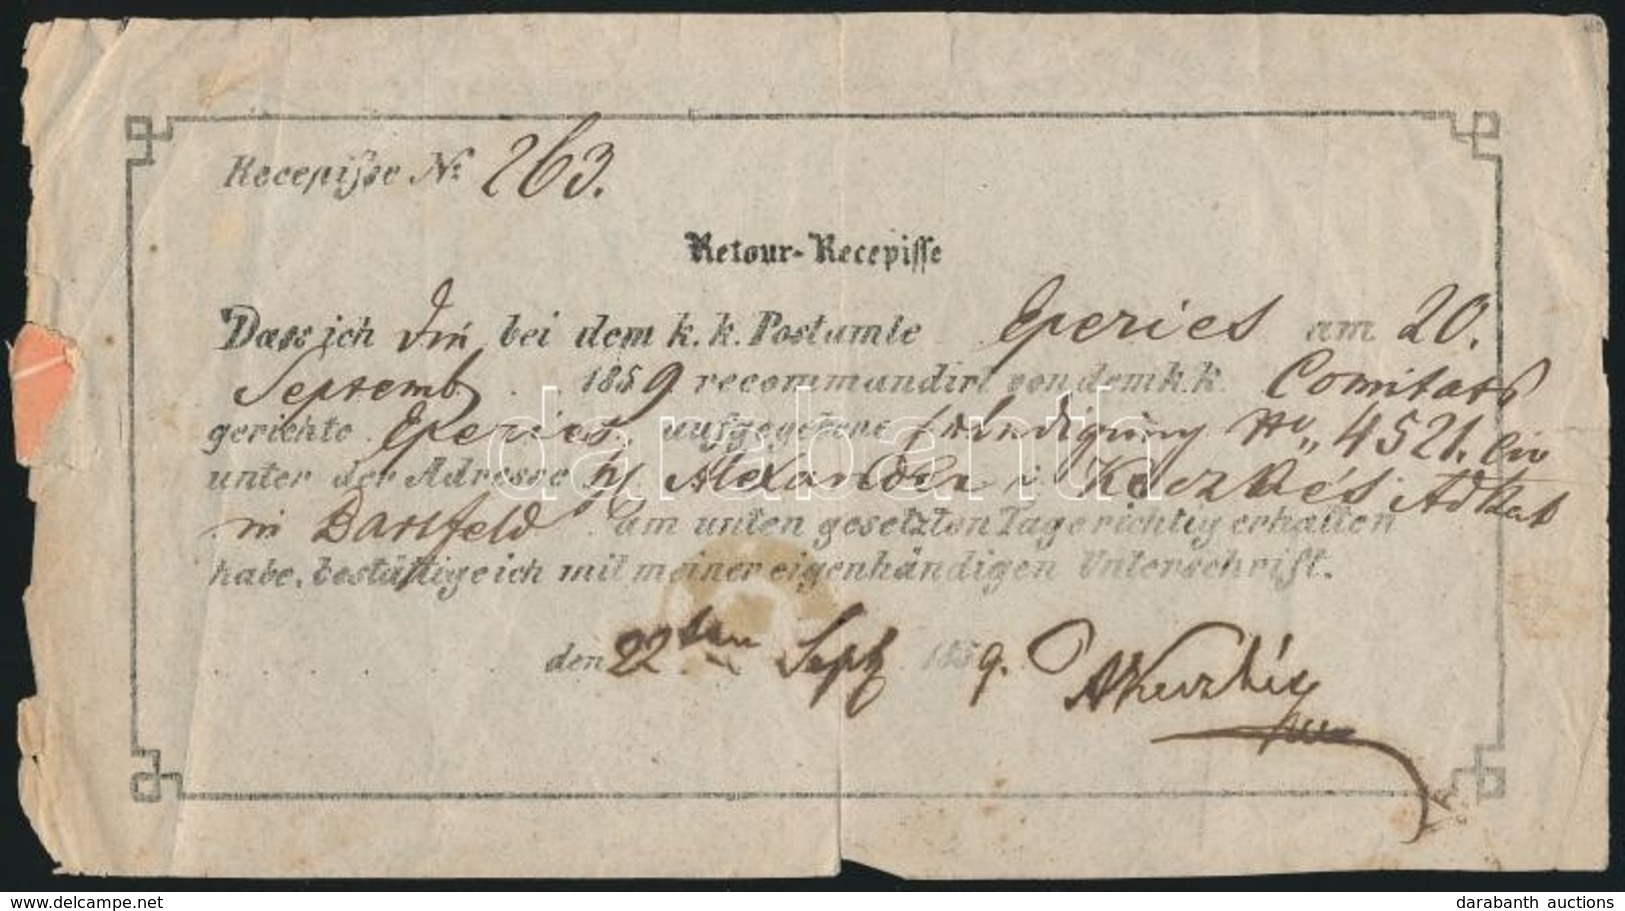 Recepisse No 263.
Retour-Recepisse
Dass ich bei dem k. k. Postamte Eperies am 20.
Septemb 1859 recommandirt von dem k. k. Comitats
gerichte Eperies aufgegebene No 4521. Civ
unter der Adresse H Alexander v Advkat
in Bartfeld am unten gesetzten Tage richtig erhalten
habe, bestättige ich mit meiner eigenhändigen Unterschrift.
den 22ten Sept 1859.
darabanth
delcampe.net
darabanth auctions